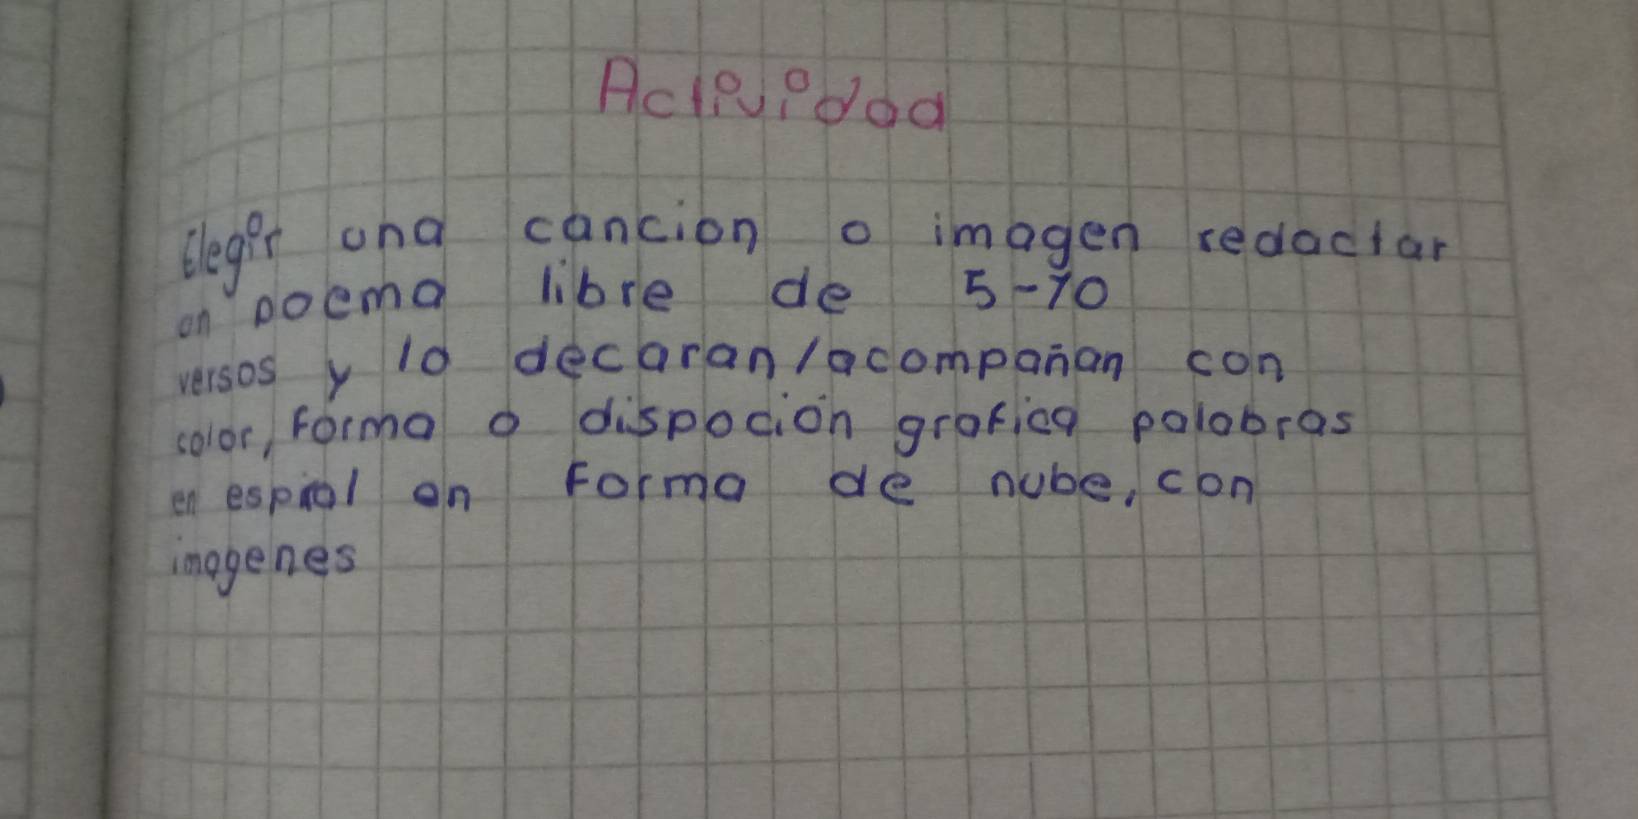 Actividad
Elegir una cancion o imagen redactar
un poema libre de 5-10
versos y lo decaran/acompañan con
color, Forma o dispoción grafica palabras
en espiral en Forma de nube, con
imagenes